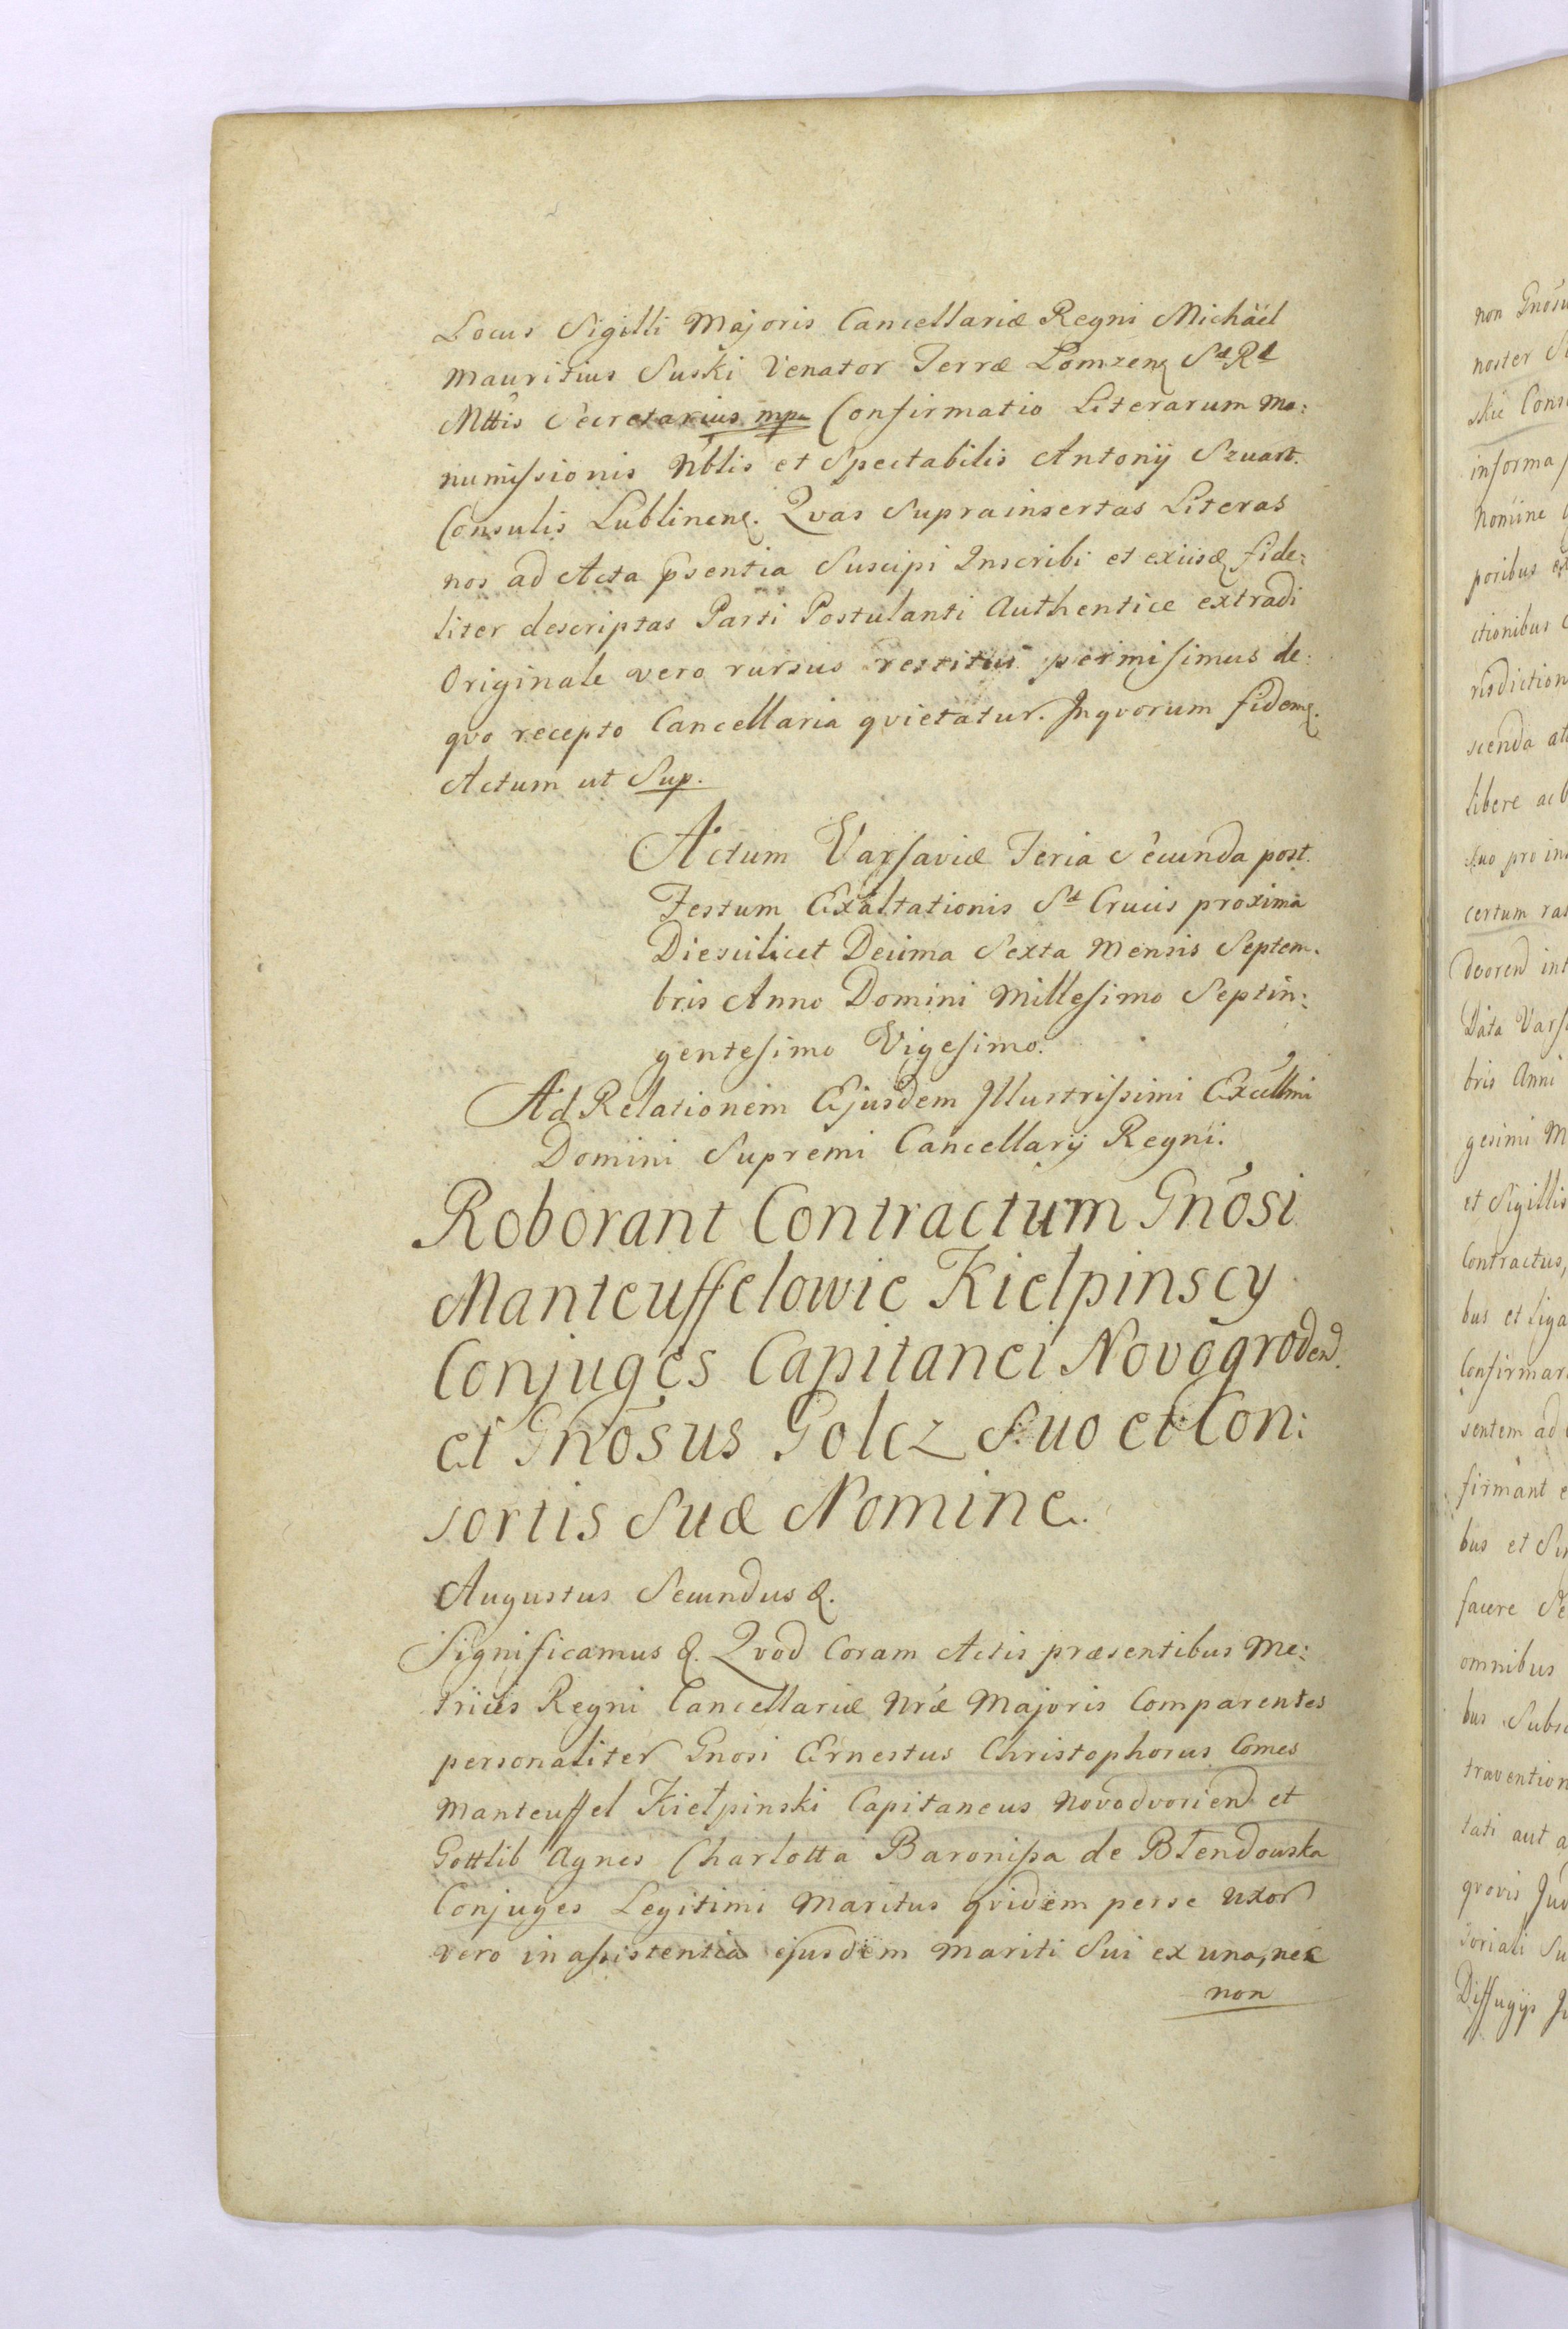 Locus Sigilli Majoris Cancellariæ Regni Michäel
Mauritius Suski Venator Terræ Lomzen S R
Mttis Secretarius mp. Confirmatio Literarum Ma:
numissionis Nblis et Spectabilis Antonij Szuart.
Consulis Lublinen. Qvas Suprainsertas Literas
nos ad Acta pñsentia Suscipi Inscribi et exiisdē fide:
liter descriptas Parti Postulanti Authentice extradi
Originale vero rursus restitui permisimus de:
qvo recepto Cancellaria qvietatur. Inqvorum fidem.
Actum ut Sup.
Actum Varsaviæ Feria Secunda post
Festum Exaltationis S Crucis proxima
Diescilicet Decima Sexta Mensis Septem.
bris Anno Domini Millesimo Septin:
gentesimo Vigesimo.
Ad Relationem Ejusdem Illustrissimi Excellmi
Domini Supremi Cancellarij Regni.
Roborant Contractum Gnosi
Manteuffelowie Kiełpinscy
Conjuges Capitanei Novogroden.
et Gnosus Golcz Suo et Con:
sortis Suæ Nomine.
Augustus Secundus &.
Significamus &. Qvod Coram Actis præsentibus Me:
trices Regni Cancellariæ Nræ Majoris Comparentes
personaliter Gnosi Ernestus Christophorus Comes
Manteuffel Kiełpinski Capitaneus Novodvorien et
Gottlib Agnes Charlotta Baronissa de Błendowska
Conjuges Legitimi Maritus qvidem perse Uxor
vero in assistentia ejusdem Mariti Sui ex una, nec
non
non
noster
skie
informa
nomine
poribus
ctionibus
risdiction
scenda
libere
suo pro
certum
Data
bris Anni
gesimi
et Sigillis
Contractus,
bus et
Confirmar
sentem ad
firmant
bus et
facere
omnibus
bus
travention
tati aut
qvovis
toriali
Diffugijs